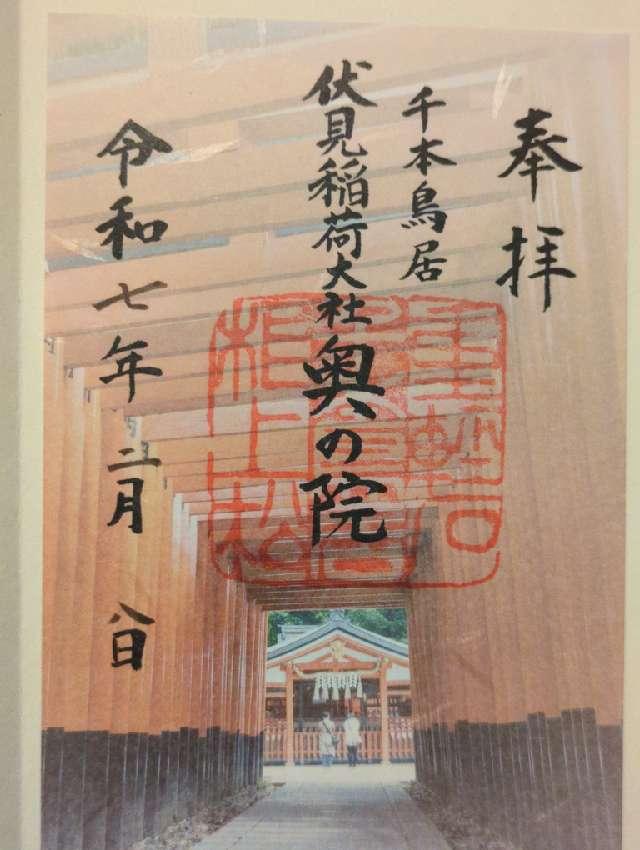 奉拝
千本鳥居
伏見稲荷大社奥の院
令和七年二月八日